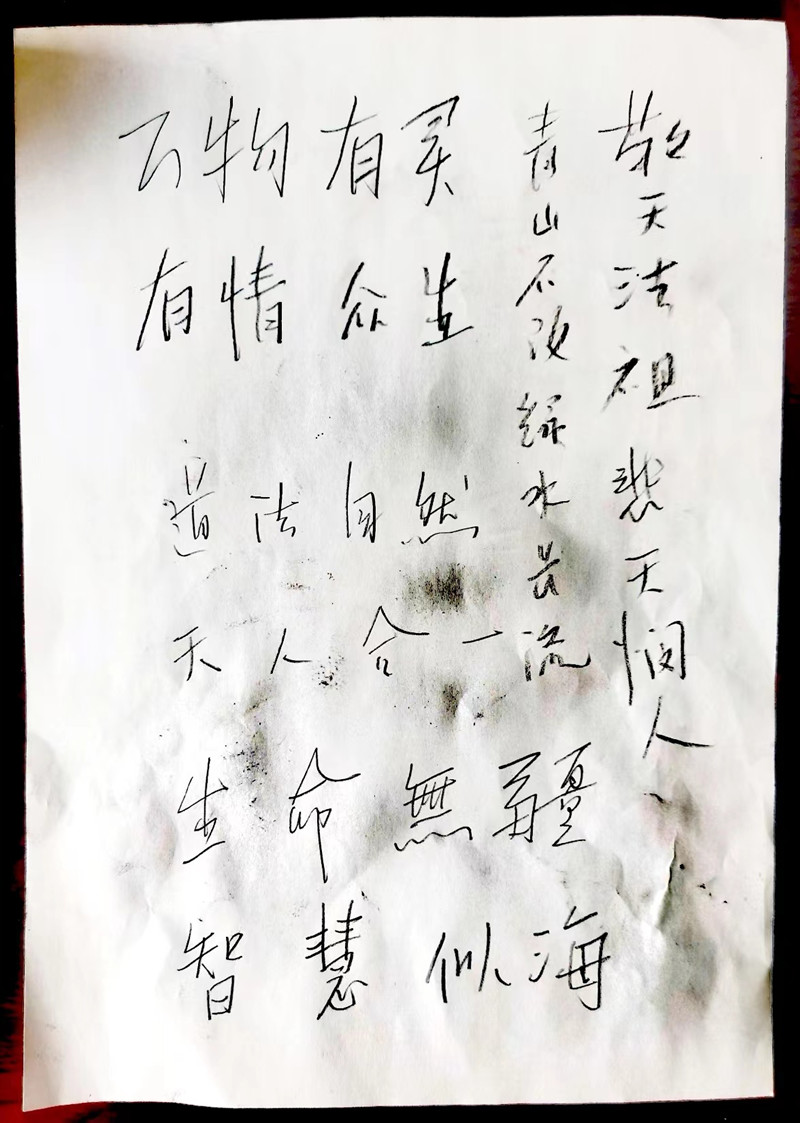 万物有灵
有情众生
道法自然
天人合一
生命無疆
智慧似海
青山不改绿水长流
敬天法祖悲天悯人